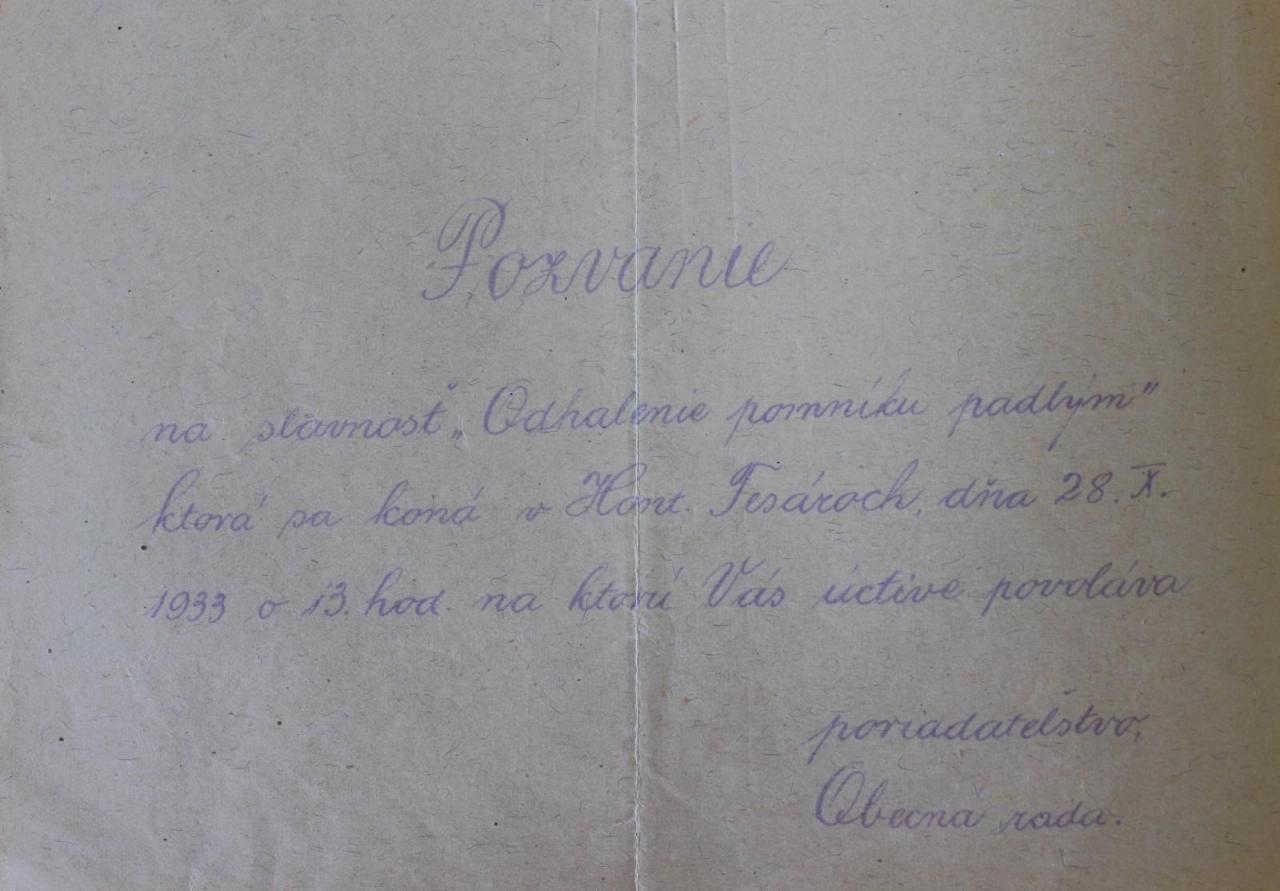 Pozvanie
na slávnosť „Odhalenie pomníku padlým"
ktorá sa koná v Hont. Tesároch, dňa 28. X.
1933 o 13. hod. na ktorú Vás úctive povoláva
poriadateľstvo,
Obecná rada.